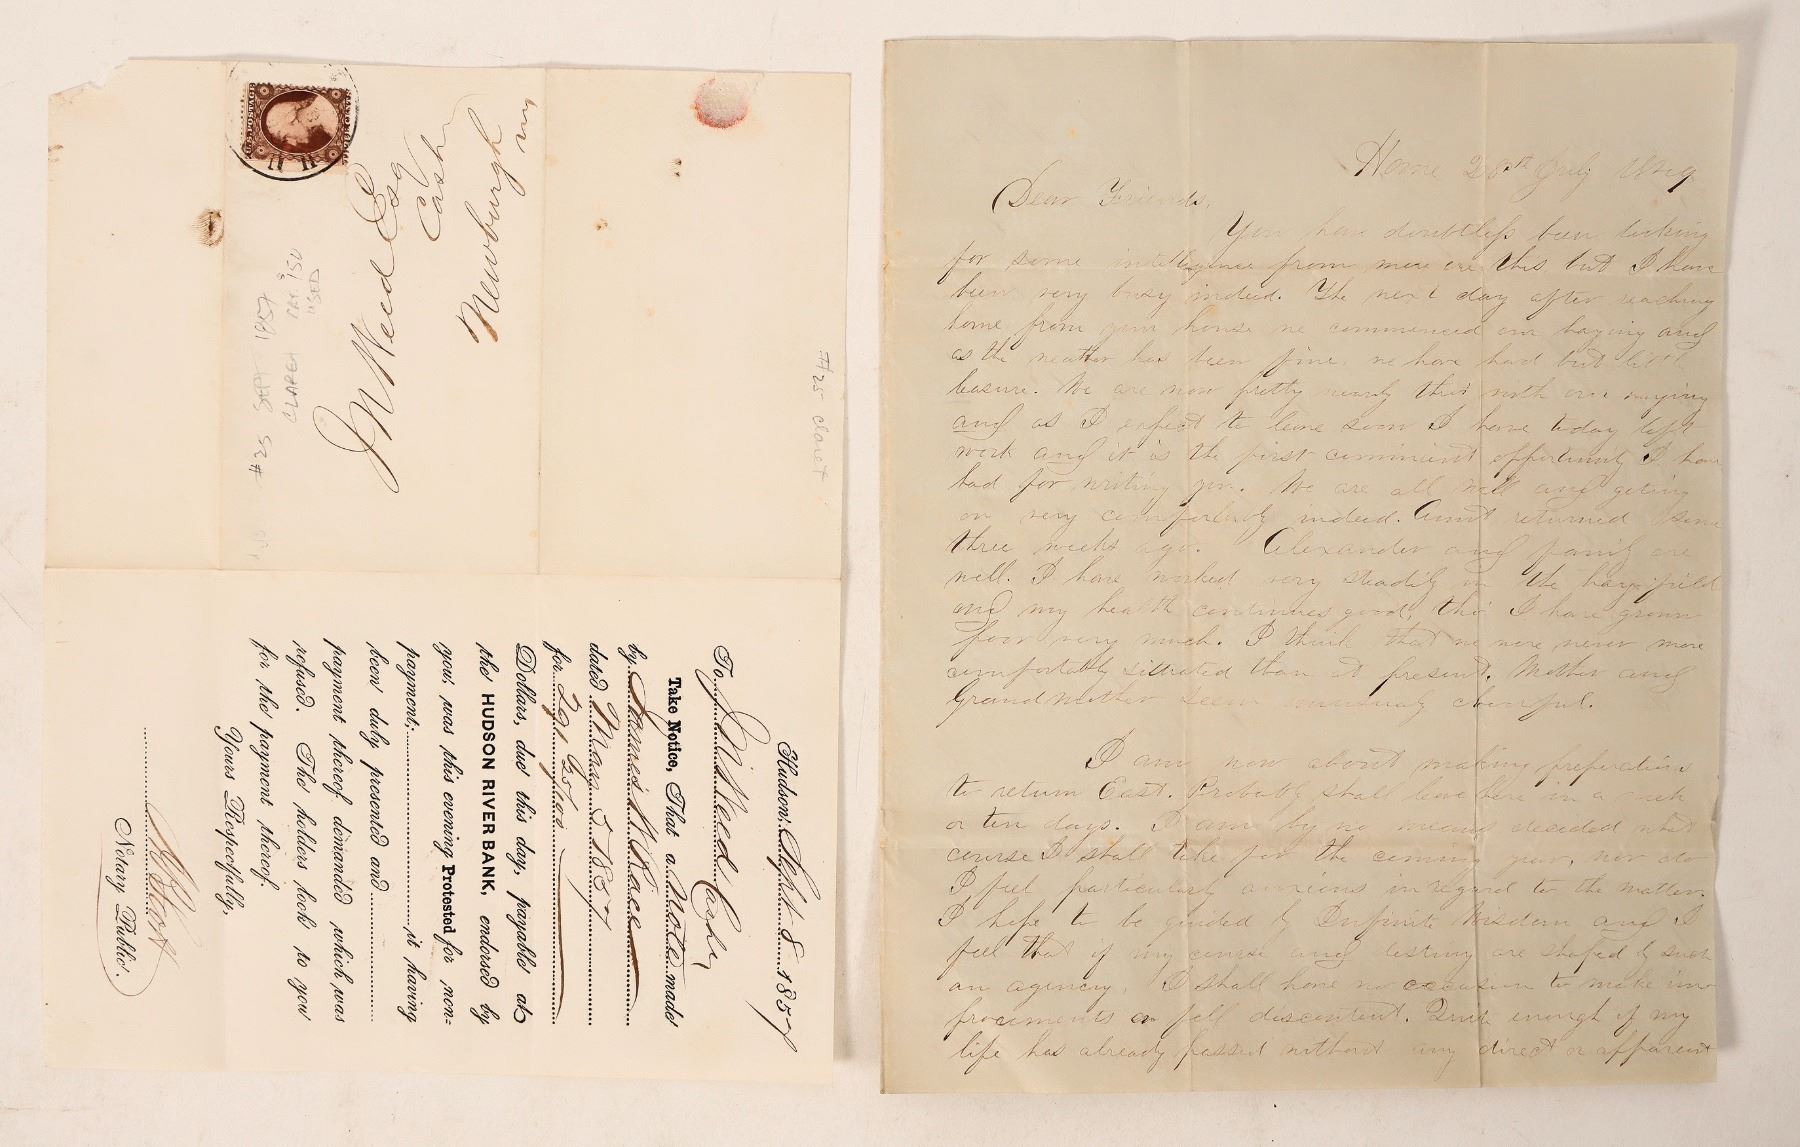 U.S. POSTAGE
THREE CENTS
J M Weed Esq
Cash
Newburgh
NY
#25 SEPT 1857
CLARET
USED
#25 claret
Hudson, Sept 8 1857
To J. M. Weed Cashr
Take Notice, That a Note made
by James W Race
dated May 5 1857
for 291 25/100
Dollars, due this day, payable at
the HUDSON RIVER BANK, endorsed by
you was this evening Protested for non-
payment, it having
been duly presented and
payment thereof demanded which was
refused. The holders look to you
for the payment thereof.
Yours Respectfully,
Notary Public.
Home 28th July
Dear Friends,
You have doubtless been looking
for some intelligence from me ere this but I have
been very busy indeed. The next day after reaching
home from your house we commenced our haying and
as the weather has been fine, we have had but little
leasure. We are now pretty nearly thro' with our haying
and as I expect to leave soon I have today left
work and it is the first convinient oppertunity I have
had for writing you. We are all well and geting
on very comfortably indeed. Aunt returned some
three weeks ago. Alexander and family are
well. I have worked very steadily in the hay-field
and my health continues good, tho' I have grown
poor very much. I think that we were never more
comfortably situated than at present. Mother and
Grandmother seem unusualy cheerful.
I am now about making preperations
to return East. Probably shall leave here in a week
or ten days. I am by no means decided what
course I shall take for the coming year, nor do
I feel particularly anxious in regard to the matter.
I hope to be guided by Infinite Wisdom and I
feel that if my course and destiny are shaped by such
an agency, I shall have no occasion to make
or fell discontent. Quite enough of my
life has already passed without any direct or apparent